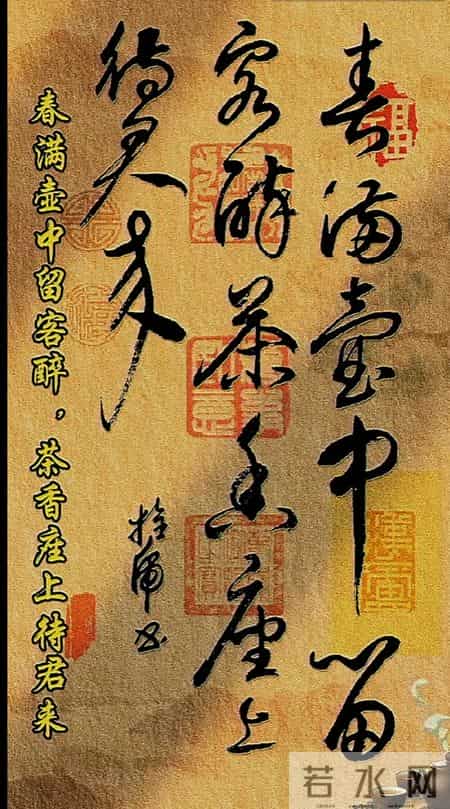 春满壶中留
客醉茶香座上
待君来
春满壶中留客醉，茶香座上待君来
福
若水网